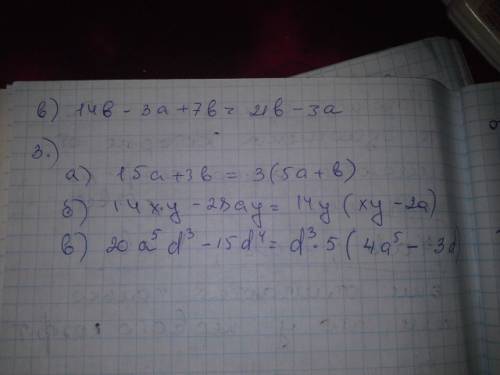 в) 14в - 3а + 7в = 21в - 3а
3.)
а) 15а + 3в = 3(5а + в)
б) 14xy - 28ay = 14y (xy - 2a)
в) 20a⁵d³ - 15d⁴ = d³·5 (4a⁵ - 3d